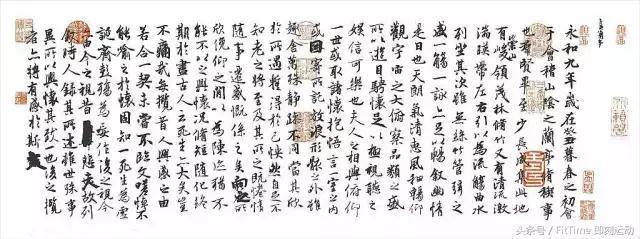 永和九年歲在癸丑暮春之初會
于會稽山陰之蘭亭脩稧事
也羣賢畢至少長咸集此地
有崇山峻領茂林脩竹又有清流激
湍暎帶左右引以為流觴曲水
列坐其次雖無絲竹管弦之
盛一觴一詠亦足以暢敘幽情
是日也天朗氣清惠風和暢仰
觀宇宙之大俯察品類之盛
所以遊目騁懷足以極視聽之
娛信可樂也夫人之相與俯仰
一世或取諸懷抱悟言一室之內
或因寄所託放浪形骸之外雖
趣舍萬殊靜躁不同當其欣
於所遇蹔得於己怏然自足不
知老之將至及其所之既惓情
隨事遷感慨係之矣向之所
欣俛仰之間以為陳迹猶不
能不以之興懷況脩短隨化終
期於盡古人云死生亦大矣豈
不痛哉每攬昔人興感之由
若合一契未嘗不臨文嗟悼不
能喻之於懷固知一死生為虛
誕齊彭殤為妄作後之視今
亦由今之視昔悲夫故列
敘時人錄其所述雖世殊事
異所以興懷其致一也後之攬
者亦將有感於斯
头条号 / FitTime 即刻运动